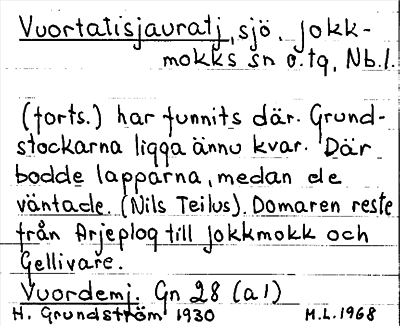 Vuortatisjauratj, sjö. Jokk-
mokks sn o. tg, Nb.l.
(forts.) har funnits där. Grund-
stockarna ligga ännu kvar. Där
bodde lapparna, medan de
väntade. (Nils Teilus). Domaren reste
från Arjeplog till Jokkmokk och
Gellivare.
Vuordemj. Gn 28 (a1)
H. Grundström 1930 M.L. 1968